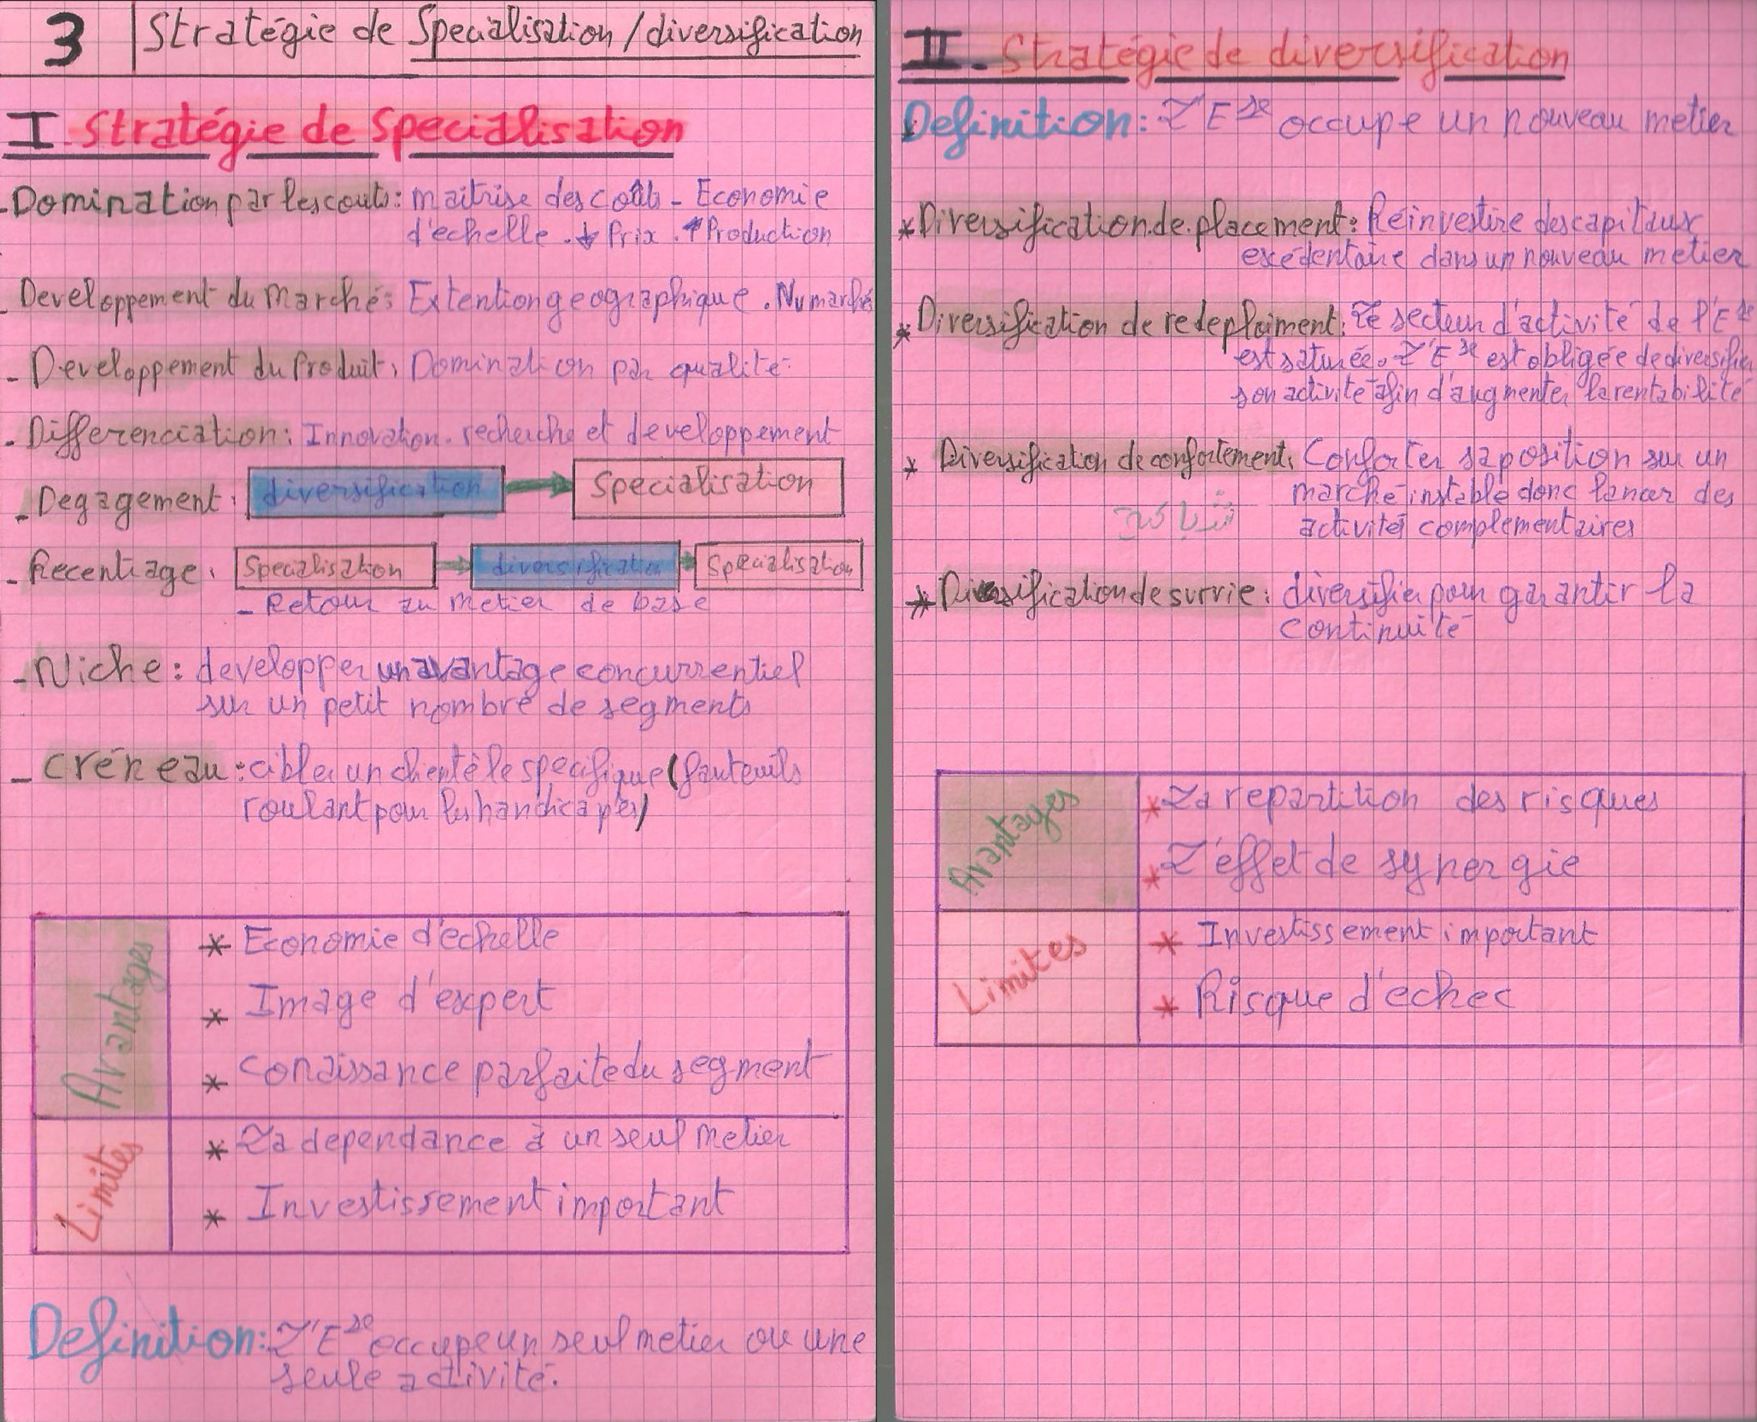 3 Stratégie de Specialisation / diversification
I. Stratégie de Specialisation
- Domination par les couts : maitrise des coûts - Economie
d'echelle . ↓ Prix . ↑ Production
. Developpement du Marché : Extention geographique . Nv marché
- Developpement du Produit : Domination par qualité.
. Differenciation : Innovation . recherche et developpement
- Degagement : diversification → Specialisation
- Recentrage : Specialisation → diversification → Specialisation
- Retour au metier de base
- Niche : developper un avantage concurrentiel
sur un petit nombre de segments
- créneau : cibler un clientèle specifique (fauteuils
roulant pour les handicapés)
Avantages
* Economie d'echelle
* Image d'expert
* conaissance parfaite du segment
Limites
* La dependance à un seul metier
* Investissement important
Definition : L'E se occupe un seul metier ou une
seule activité.
II. Stratégie de diversification
Definition : L'E se occupe un nouveau metier
* Diversification de placement : Réinvestire des capitaux
excédentaire dans un nouveau metier
* Diversification de redeploiment : Le secteur d'activité de l'E se
est saturée. L'E se est obligée de diversifier
son activité afin d'augmenter la rentabilité
* Diversification de confortement : Conforter sa position sur un
marché instable donc lancer des
activités complementaires
* Diversification de survie : diversifier pour garantir la
continuité
Avantages
* La repartition des risques
* L'effet de synergie
Limites
* Investissement important
* Risque d'echec